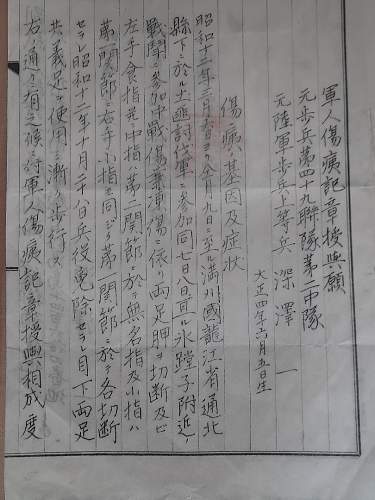 軍人傷痍記章授與願
元歩兵第四十九聯隊第二中隊
元陸軍歩兵上等兵 深澤 一
大正四年六月五日生
傷痍ノ基因及症状
昭和十二年三月 ヨリ仝月九日ニ至ル満州國龍江省通北
縣下ニ於ル土匪討伐ニ参加同七日八日亘ル氷蹚子附近ノ
戰闘ニ参加中戰傷兼凍傷ニ依リ両足胛ヲ切断及ビ
左手食指是中指ハ第二関節ニ於テ無名指及小指ハ
第一関節ニ右手小指モ同ジク第一関節ニ於テ各切断
セラレ昭和十二年十月二十八日兵役免除セラレ目下両足
共義足ヲ使用シ漸ク歩行ス
右ノ通リニ有之候ニ付軍人傷痍記章授與相成度